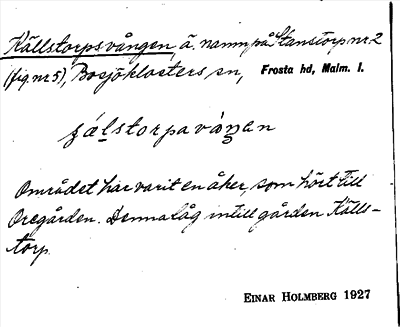 Källstorpsvången, ä. namn på Stanstorp nr 2
(fig nr 5), Bosjöklosters sn, Frosta hd, Malm. l.
Området har varit en åker, som hört till
Oregården. Denna låg intill gården Källs-
torp.
EINAR HOLMBERG 1927